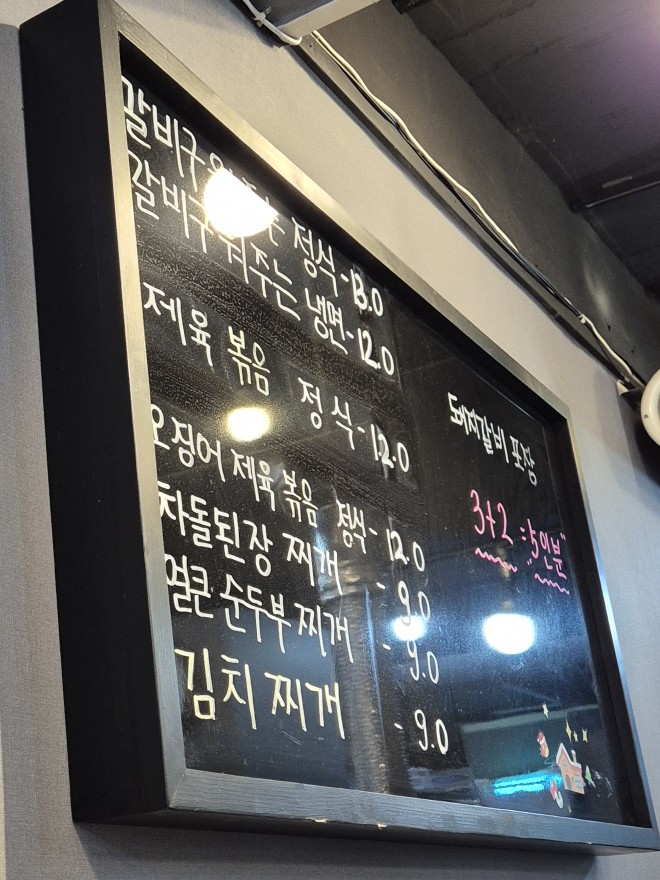 갈비구 는 정식 - 13.0
갈비구워주는 냉면 - 12.0
제육 볶음 정식 - 12.0
오징어 제육 볶음 정식 - 12.0
차돌된장 찌개 - 9.0
얼큰 순두부 찌개 - 9.0
김치 찌개 - 9.0
돼지갈비 포장
3+2 = "5인분"